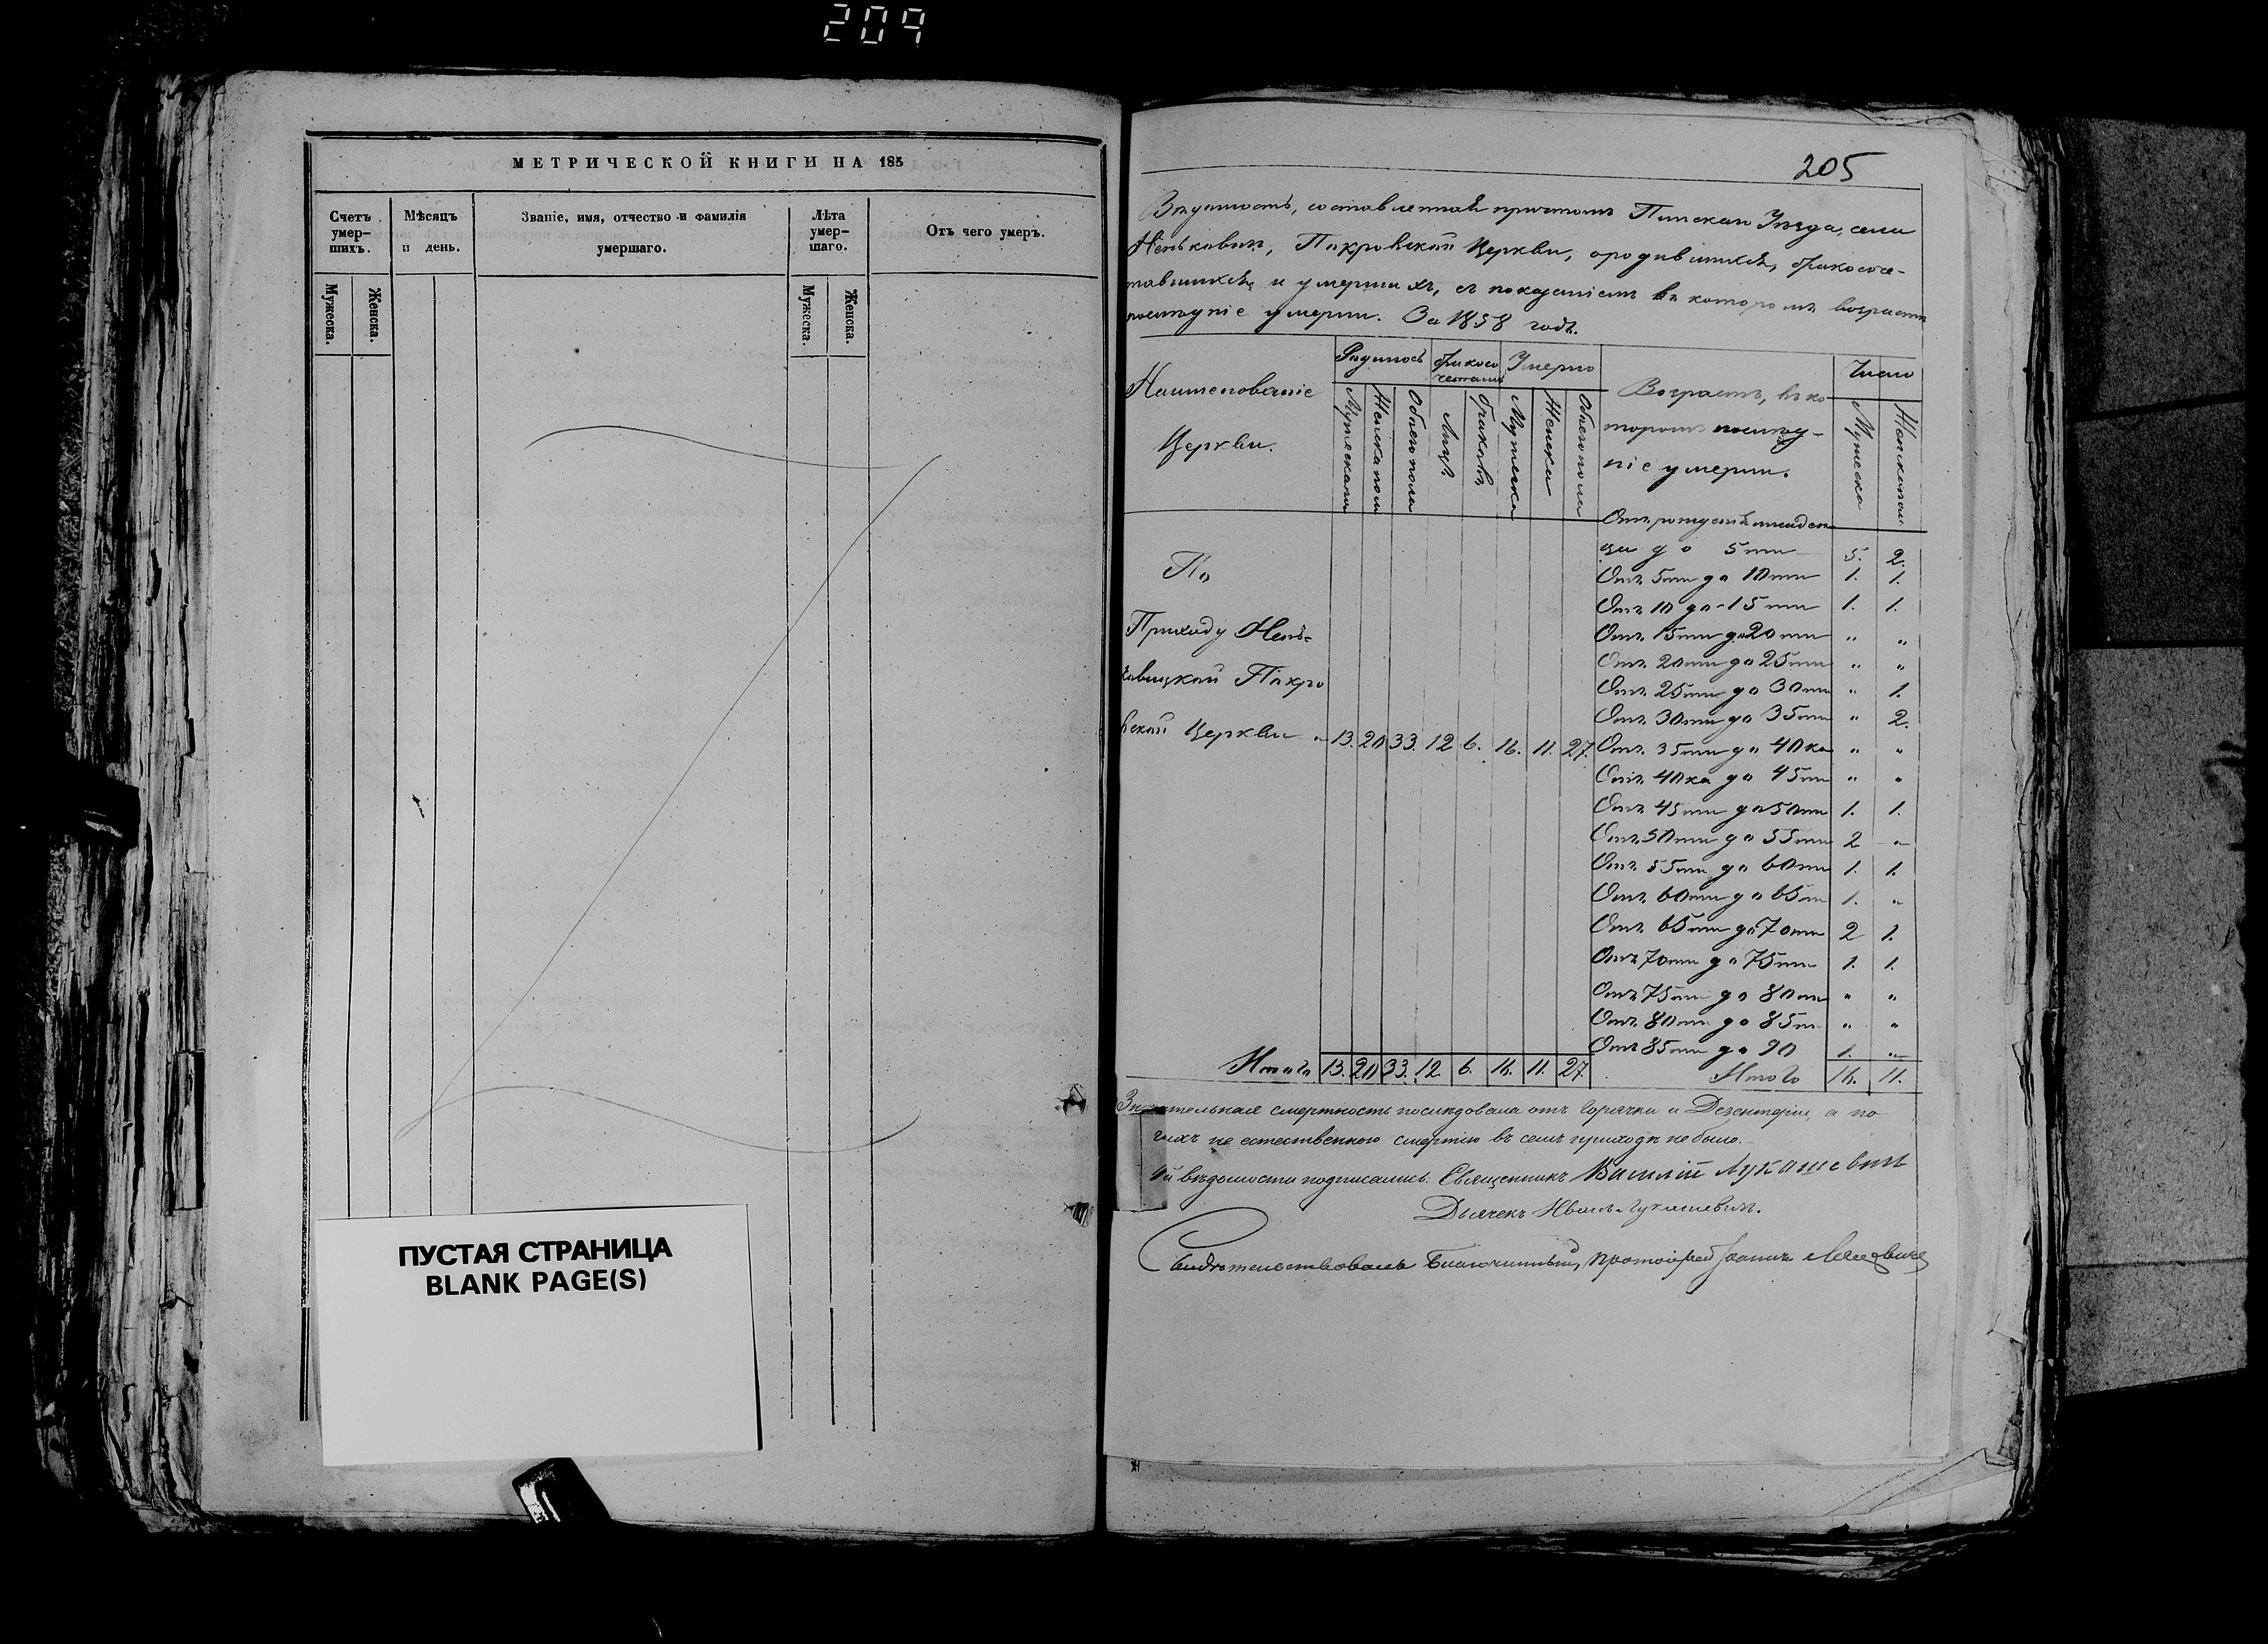 209
МЕТРИЧЕСКОЙ КНИГИ НА 185
Счетъ умер-шихъ.
Мѣсяцъ и день.
Званіе, имя, отчество и фамилія умершаго.
Лѣта умер-шаго.
Отъ чего умеръ.
Мужеска.
Женска.
Мужеска.
Женска.
ПУСТАЯ СТРАНИЦА
BLANK PAGE(S)
205
Вѣдомость, составленная причтомъ Пинскаго Уѣзда, села
Неньковичъ, Покровской Церкви, о родившихся, бракосоче-
тавшихся и умершихъ, съ показаніемъ въ которомъ возрастѣ
послѣдніе умерли. За 1858 годъ.
Наименованіе Церкви.
Родилось
Бракосочетались
Умерло
Возрастъ, въ ко-
торомъ послѣд-
ніе умерли.
Число
Мужескаго
Женска пола
Обоего пола
Лицъ.
Браковъ
Мужеска
Женска
Обоего пола
Мужеска
Женска пола
Отъ рожденія младен
ца до 5ти 5. 2.
Отъ 5ти до 10ти 1. 1.
Отъ 10 до 15ти 1. 1.
Отъ 15ти до 20ти " "
Отъ 20ти до 25ти " "
Отъ 25ти до 30ти " 1.
Отъ 30ти до 35ти " 2.
По
Приходу Нень-
ковицкой Покро
вской Церкви 13. 20 33. 12 6. 16. 11. 27.
Отъ 35ти до 40ка " "
Отъ 40ка до 45ти " "
Отъ 45ти до 50ти 1. 1.
Отъ 50ти до 55ти 2 "
Отъ 55ти до 60ти 1. 1.
Отъ 60ти до 65ти 1. "
Отъ 65ти до 70ти 2 1.
Отъ 70ти до 75ти 1. 1.
Отъ 75ти до 80ти " "
Отъ 80ти до 85ти " "
Отъ 85ти до 90 1. "
Итого 13. 20 33. 12 6. 16. 11. 27. Итого 16. 11.
смертность послѣдовала отъ Горячки и Дезентеріи, а по
гихъ не естественною смертію въ семъ приходѣ не было.
вѣдомости подписались: Священникъ Василій Лукашевичъ
Дьячекъ Иванъ Лукашевичъ.
Свидѣтельствовалъ Благочинный, Протоіерей Іоаннъ